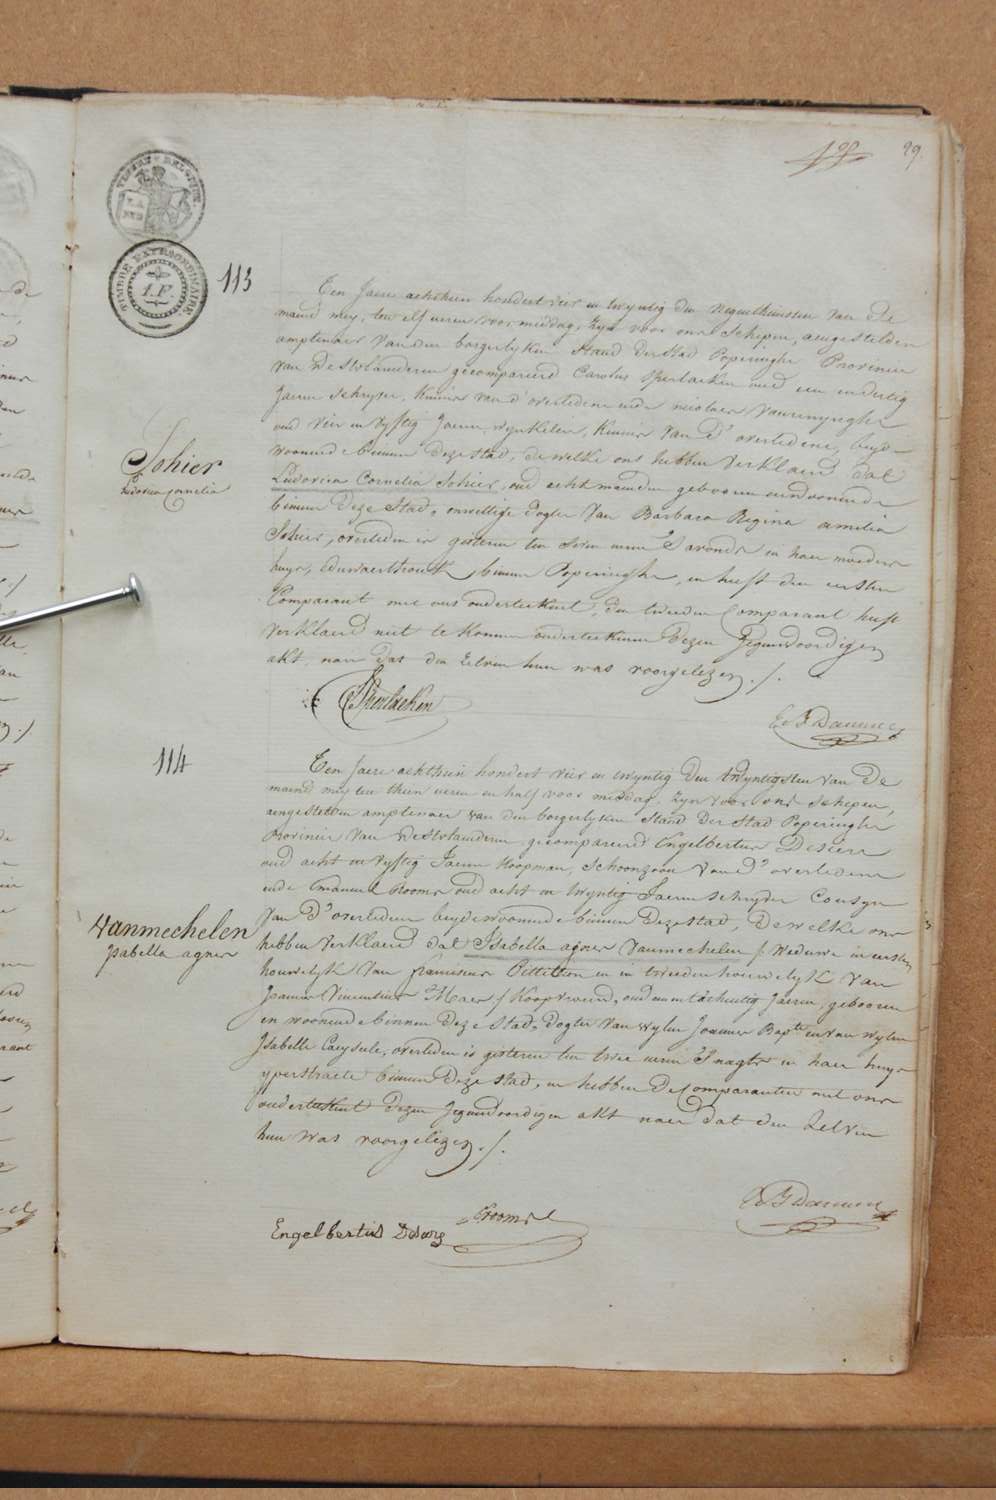 99.
TIMBRE EXTRAORDINAIRE
1.F.
113
Een Jaere achthien hondert vier en twyntig den negenthiensten van de
maend mey, ten elf ueren voormiddag, zyn voor ons Schepen, aengestelden
amptenaer van den borgerlyken Stand der Stad Poperinghe Provincie
van Westvlaenderen gecompareerd Carolus Sperlaeken oud een en dertig
Jaeren schryver, Kennis van d'overledene ende nicolaes
oud vier en vyftig Jaeren, wynkelier, Kennis van d'overledene, beyde
woonende binnen deze stad, dewelke ons hebben verklaerd dat
Ludovica Cornelia Sohier, oud acht maenden gebooren en woonende
binnen deze Stad, onwettige dogter van Barbara Regina amelia
Sohier, overleden is gisteren ten seven ueren S'avonds in haer moeders
huys, binnen Poperinghe, en heeft den eersten
Comparant met ons onderteekent, den tweeden Comparant heeft
verklaerd niet te konnen onderteekenen dezen Jegenwoordigen
akt, naer dat den zelven hun was voorgelezen ./.
Sohier
Ludovica Cornelia
Sperlaeken
114
Een Jaere achthien hondert vier en twyntig den twyntigsten van de
maend mey ten thien ueren en half voor middag, zyn voor ons Schepen,
aengestelden amptenaer van den borgerlyken Stand der Stad Poperinghe
Provincie van Westvlaenderen gecompareerd Engelbertus Desiere
oud acht en vyftig Jaeren Koopman, Schoonzoon van d'overledene
ende Emanuel Rooms oud acht en twyntig Jaeren schryder Cousyn
van d'overledene beyde woonende binnen deze stad, dewelke ons
hebben verklaerd dat Isabella agnes Vanmechelen / Weduwe in eersten
houwelyk van franciscus Pittillion en in tweeden houwelyk van
Joannes Vincentius Maes / Koopvrouw, oud een en tachentig Jaeren, gebooren
en woonende binnen deze stad, dogter van wylen Joannes Bapte en van wylen
Isabelle Caeysele, overleden is gisteren ten twee ueren S'nagts in haer huys
yperstraete binnen deze stad, en hebben de Comparanten met ons
onderteekent dezen Jegenwoordigen akt naer dat den zelven
hun was voorgelezen ./.
Vanmechelen
isabella agnes
Engelbertus
Rooms